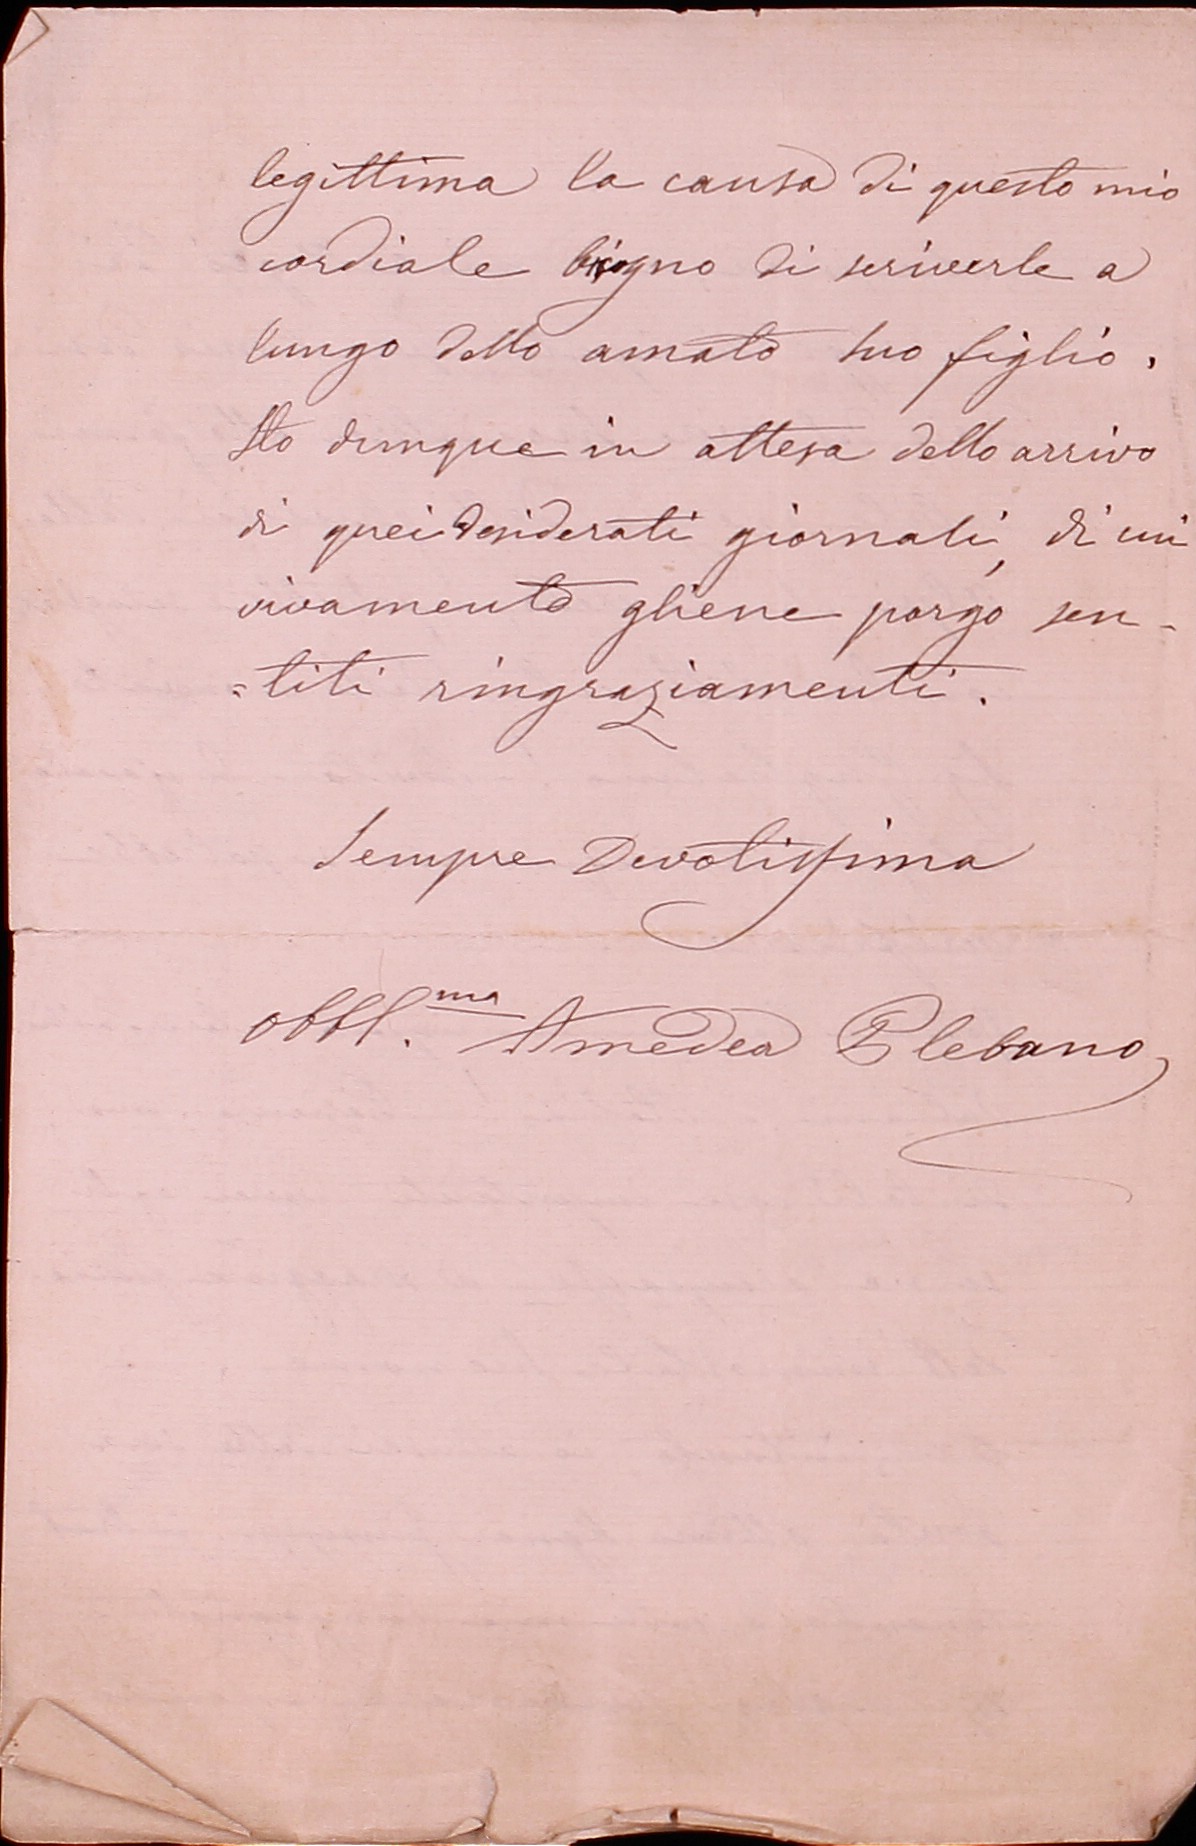 legittima la causa di questo mio
cordiale bisogno di scriverle a
lungo dello amato suo figlio.
Sto dunque in attesa dello arrivo
di quei desiderati giornali, di cui
vivamente gliene porgo sen-
=titi ringraziamenti.
Sempre Devotissima
obbl.ma Amedea Plebano